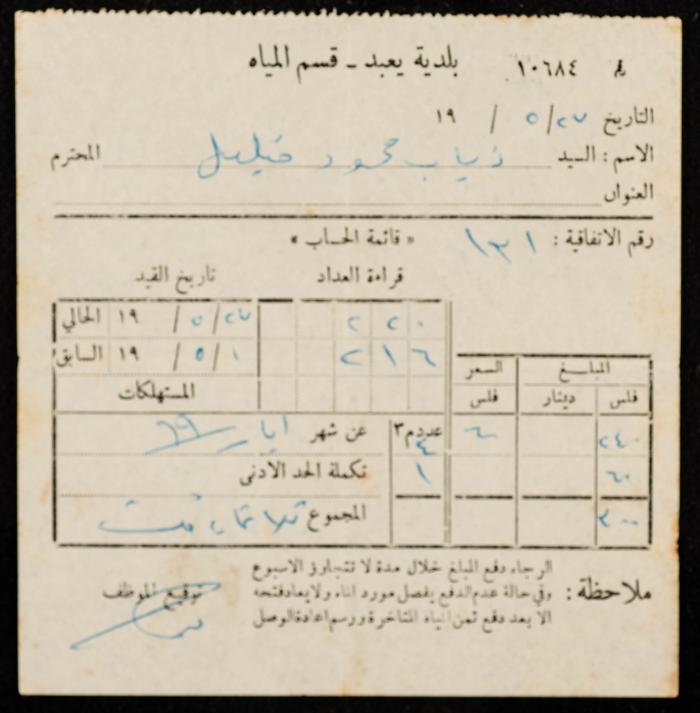 بلدية يعبد - قسم المياه
١٠٦٨٤
التاريخ ٥/٢٧ / ١٩
الاسم : السيد ذياب محمود خليل المحترم
العنوان
رقم الاتفاقية : ١٣١
« قائمة الحساب »
قراءة العداد تاريخ القيد
٢٢٠ ٥/٢٧ / ١٩ الحالي
٢١٦ ٥/١ / ١٩ السابق
المبلغ السعر
المستهلكات
فلس دينار فلس
٢٤٠ ٦٠ عدد م٣ ٤ عن شهر ايار ٦٩
٦٠ ١ تكملة الحد الادنى
٣٠٠ المجموع ثلاثماية فلس
ملاحظة : الرجاء دفع المبلغ خلال مدة لا تتجاوز الاسبوع
وفي حالة عدم الدفع يفصل مورد الماء ولا يعاد فتحه
الا بعد دفع ثمن المياه المتاخرة ورسم اعادة الوصل
توقيع الموظف